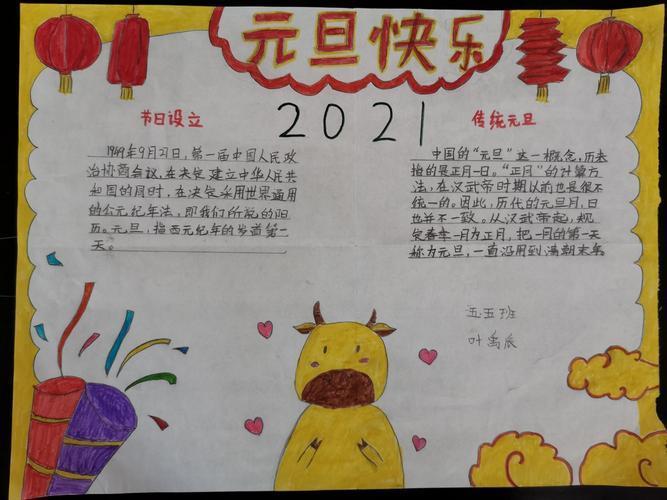 元旦快乐
2021
节日设立
1949年9月27日，第一届中国人民政
治协商会议，在决定建立中华人民共
和国的同时，在决定采用世界通用
的公元纪年法，即我们所说的阳
历。元旦，指西元纪年的岁首第一
天。
传统元旦
中国的“元旦”这一概念，历来
指的是正月一日。“正月”的计算方
法，在汉武帝时期以前也是很不
统一的。因此，历代的元旦月、日
也并不一致。从汉武帝起，规
定春季一月为正月，把一月的第一天
称为元旦，一直沿用到清朝末年
五五班
叶禹辰